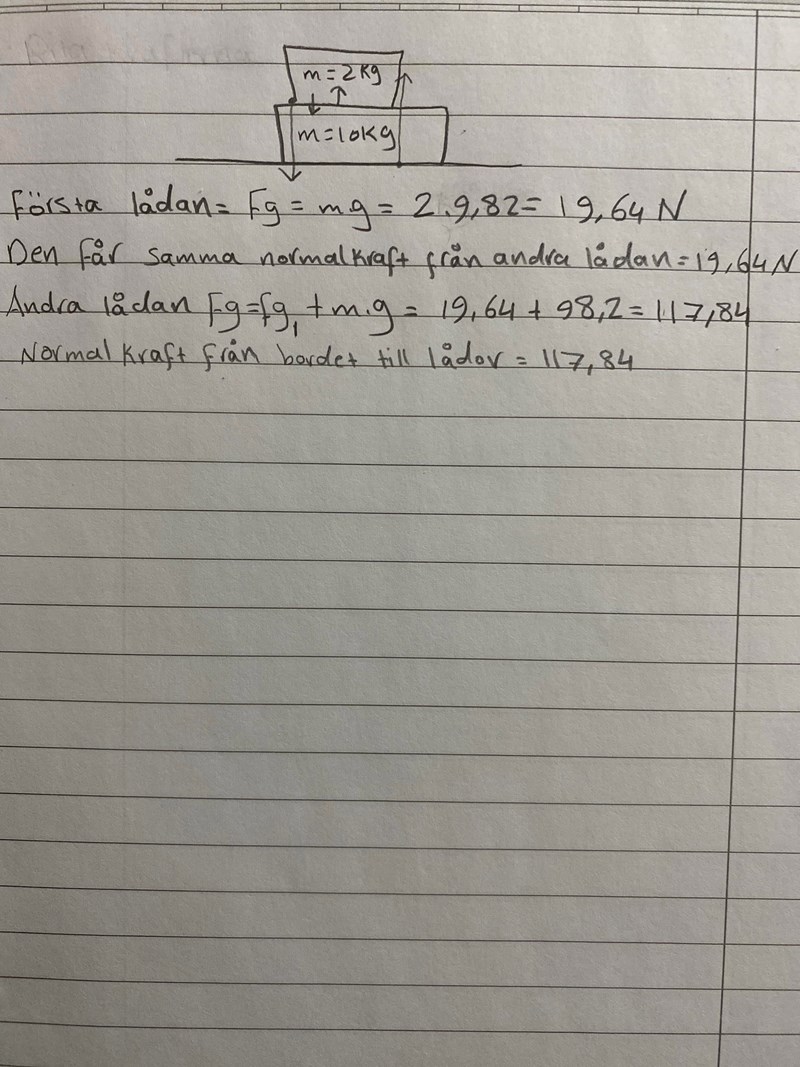 m=2kg
m=10kg
Första lådan= Fg = m.g = 2.9,82= 19,64 N
Den får samma normalkraft från andra lådan=19,64N
Andra lådan Fg=fg₁ + m.g = 19,64 + 98,2=117,84
Normalkraft från bordet till lådor = 117,84